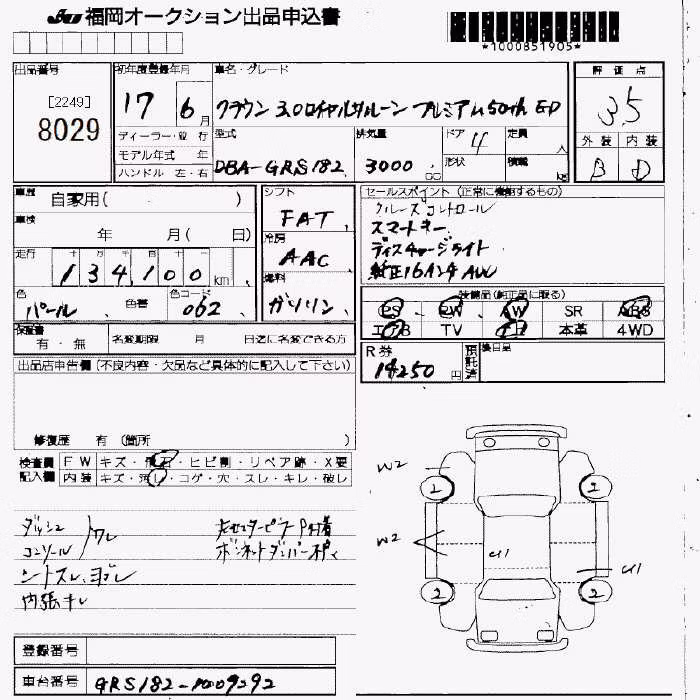 JU 福岡オークション出品申込書
*1000851905*
出品番号 初年度登録年月 車名・グレード 評価点
[2249]
8029
17 6月 クラウン 3.0ロイヤルサルーン プレミアム50th ED 3.5
ディーラー・並行 型式 排気量 ドア 4 定員 人 外装 内装
モデル年式 年 DBA-GRS182 3000 cc 形状 積載 kg B D
ハンドル 左・右
車歴 自家用( ) シフト FAT セールスポイント (正常に機能するもの)
車検 年 月( 日) 冷房 AAC クルーズコントロール
スマートキー
走行 十 万 千 百 十 ディスチャージライト
134,100 km 燃料 純正16インチAW
色 パール 色替 色コード 062 ガソリン 装備品(純正品に限る)
PS PW AW SR ABS
保証書 有・無 名変期限 月 日迄に名変できる方 エアB TV 本革 4WD
出品店申告欄 (不良内容・欠品など具体的に記入して下さい) R券 14250円 預託済
修復歴 有 (箇所 )
検査員 FW キズ・飛石・ヒビ割・リペア跡・X要
記入欄 内装 キズ・汚レ・コゲ・穴・スレ・キレ・破レ
W2 2 2
ダッシュ ワレ
コンソール
シートスレ、ヨゴレ ボンネットダンパー
内張キレ
W2 U1 U1
2 2
登録番号
車台番号 GRS182-1009292